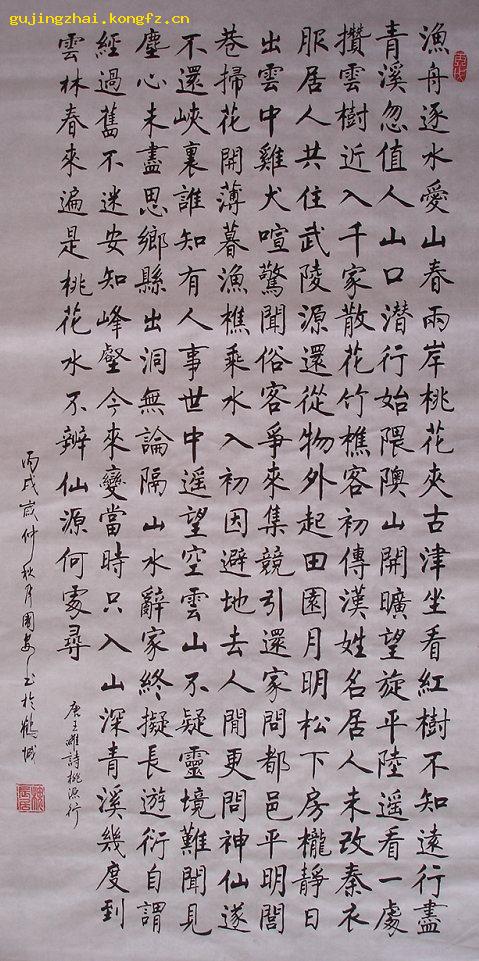 gujingzhai.kongfz.cn
漁舟逐水愛山春兩岸桃花夾古津坐看紅樹不知遠行盡
青溪忽值人山口潛行始隈隩山開曠望旋平陸遥看一處
攢雲樹近入千家散花竹樵客初傳漢姓名居人未改秦衣
服居人共住武陵源還從物外起田園月明松下房櫳靜日
出雲中雞犬喧驚聞俗客爭來集競引還家問都邑平明閭
巷掃花開薄暮漁樵乘水入初因避地去人閒更問神仙遂
不還峽裏誰知有人事世中遥望空雲山不疑靈境難聞見
塵心未盡思鄉縣出洞無論隔山水辭家終擬長遊衍自謂
經過舊不迷安知峰壑今來變當時只入山深青溪幾度到
雲林春來遍是桃花水不辨仙源何處尋
唐王維詩桃源行
丙戌歲仲秋月國书於鶴城